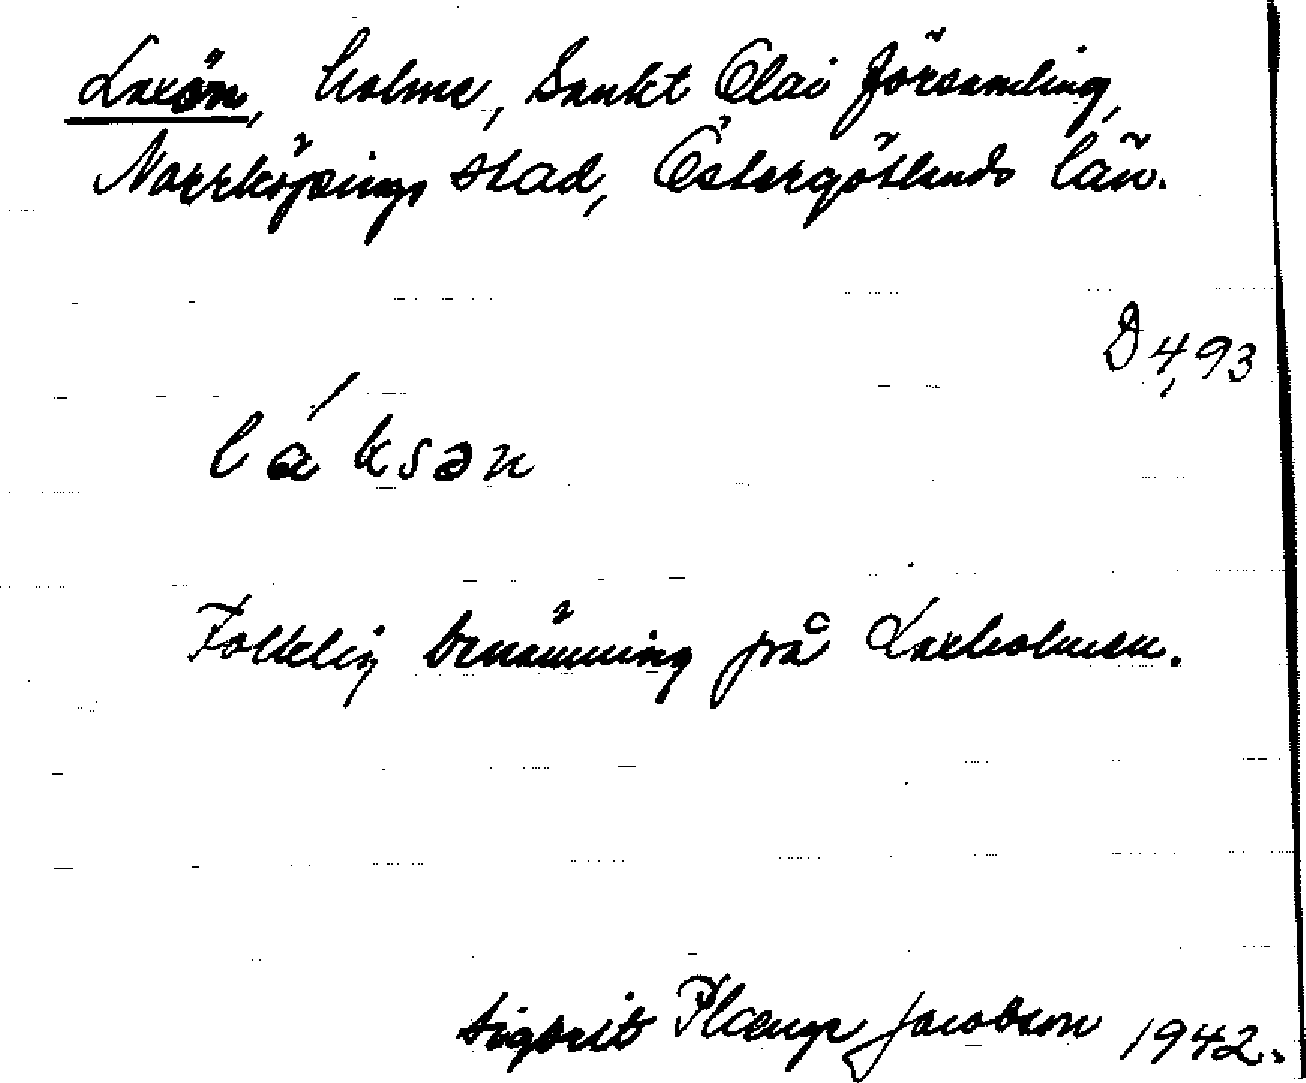 Laxön, holme, Sankt Olai församling,
Norrköpings stad, Östergötlands län.
D 4,93
láksən
Folklig benämning på Laxholmen.
Sigbrit Plænge Jacobson 1942.